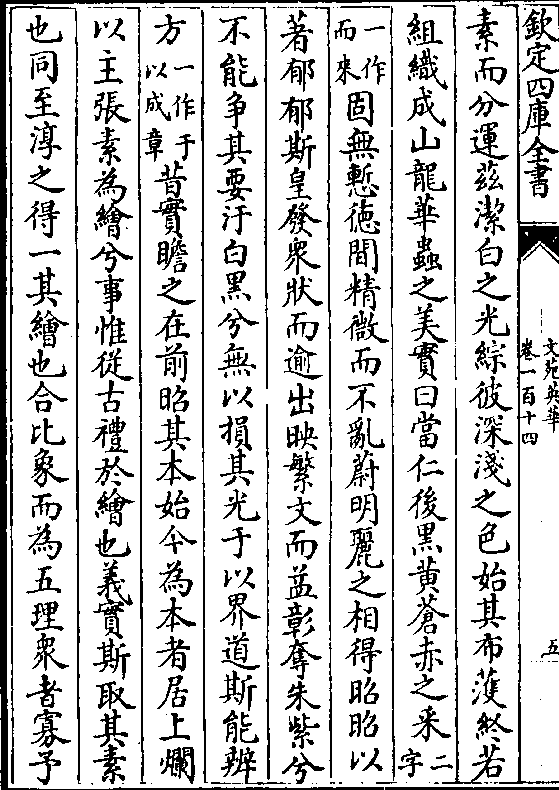 欽定四庫全書
文苑英華
卷一百十四
五
素而分運兹潔白之光綜彼深淺之色始其布濩終若
組織成山龍華蟲之美實曰當仁後黑黄蒼赤之采二字
一作而來固無慙徳間精微而不亂蔚明麗之相得昭昭以
著郁郁斯皇發衆狀而逾出映繁文而益彰奪朱紫兮
不能争其要汙白黑兮無以損其光于以界道斯能辨
方一作于以成章昔實瞻之在前昭其本始今為本者居上爛
以主張素為繪兮事惟從古禮於繪也義實斯取其素
也同至淳之得一其繪也合比象而為五理衆者寡予